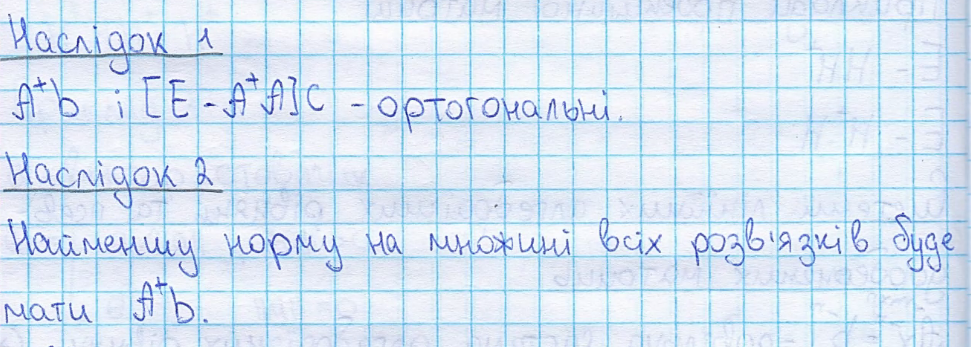 Наслідок 1
A⁺b і [E - A⁺A]c - ортогональні.
Наслідок 2
Найменшу норму на множині всіх розв'язків буде
мати A⁺b.